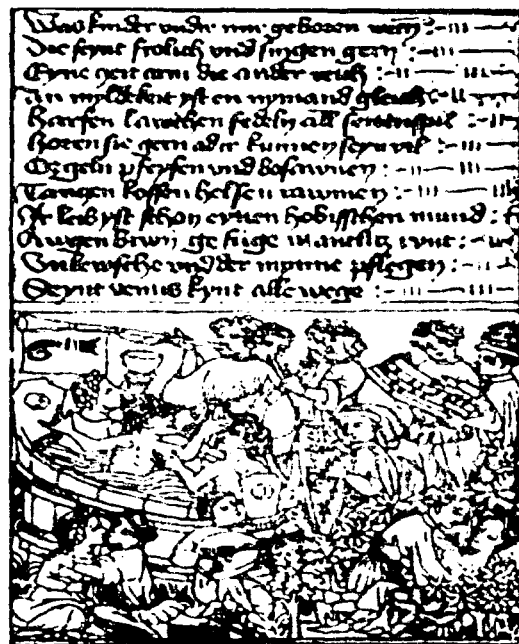 Was kinder vnder mir geboren wern
Die seynt frolich vnd singen gern
Eyne zeit arm die ander reich
An myldekeit yst en nymand gleich
Harfen lawthen fedeln all seytenspil
Horen sie gern ader kunnen seyn vil
Orgeln pfeyfen vnd bosawnen
Tanczen kossen helsen rawmen
Ir leib yst schon eynen hobisschen mund
Awgen brwn gefuge
Vnkewsche vnd der mynne pflegen
Seynt venus kynt alle wege